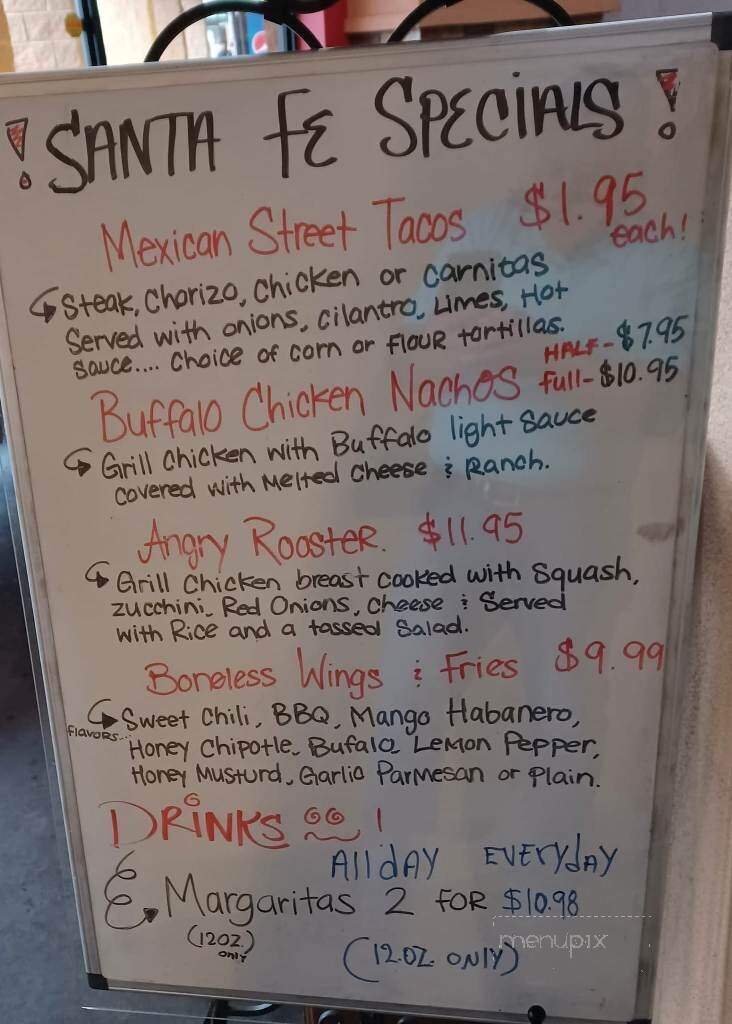 ! SANTA FE SPECIALS !
Mexican Street Tacos $1.95
each!
Steak, Chorizo, Chicken or Carnitas
Served with onions, cilantro, Limes, Hot
Sauce.... Choice of corn or flour tortillas.
HALF- $7.95
Buffalo Chicken Nachos full- $10.95
Grill Chicken with Buffalo light Sauce
covered with Melted Cheese & Ranch.
Angry Rooster. $11.95
Grill Chicken breast cooked with Squash,
Zucchini, Red Onions, Cheese & Served
with Rice and a tassed Salad.
Boneless Wings & Fries $9.99
Flavors...
Sweet Chili, BBQ, Mango Habanero,
Honey Chipotle, Bufalo, Lemon Pepper,
Honey Musturd, Garlic Parmesan or Plain.
DRINKS !
All dAY EVERYdAY
Margaritas 2 FOR $10.98
(12OZ.) only
(12.OZ. ONLY)
menupix